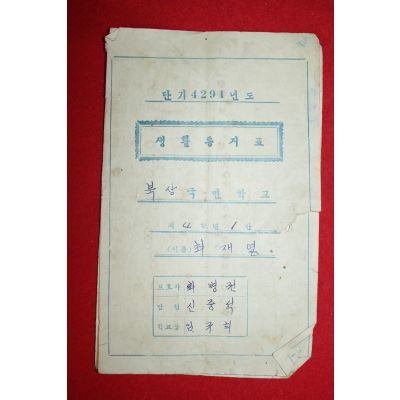 단기4291년도
생활통지표
북상국민학교
제4학년1반
(이름) 최재열
보호자 최병권
담임 신중석
학교장